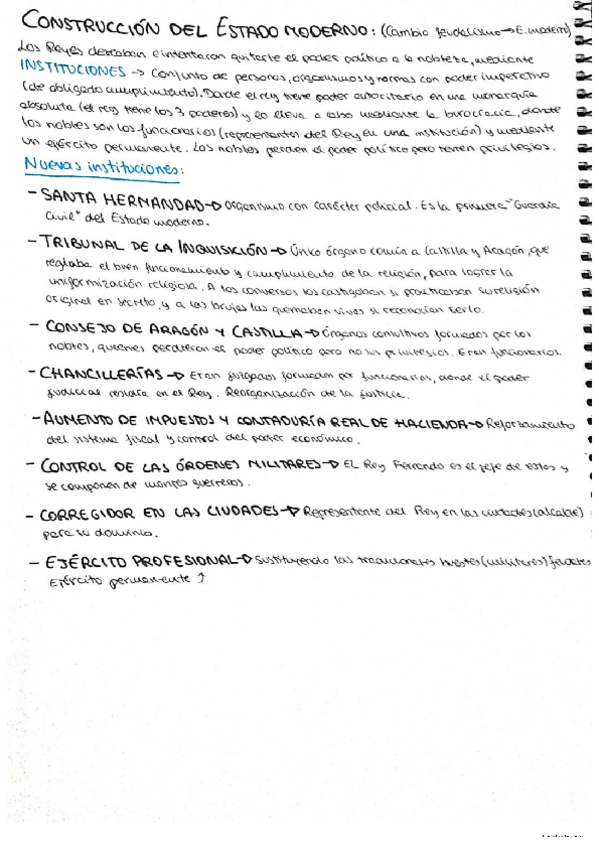 CONSTRUCCIÓN DEL ESTADO MODERNO: (Cambio feudalismo → E. moderno)
Los Reyes deseaban e intentaron quitarle el poder político a la nobleza, mediante
INSTITUCIONES → Conjunto de personas, organismos y normas con poder imperativo
(de obligado cumplimiento). Donde el rey tiene poder autoritario en una monarquía
absoluta (el rey tiene los 3 poderes) y lo lleva a cabo mediante la burocracia, donde
los nobles son los funcionarios (representantes del Rey en una institución) y mediante
un ejército permanente. Los nobles pierden el poder político pero tienen privilegios.
Nuevas instituciones:
- SANTA HERMANDAD → Organismo con carácter policial. Es la primera "Guardia
Civil" del Estado moderno.
- TRIBUNAL DE LA INQUISICIÓN → Único órgano común a Castilla y Aragón, que
reglaba el buen funcionamiento y cumplimiento de la religión, para lograr la
uniformización religiosa. A los conversos los castigaban si practicaban su religión
original en secreto, y a las brujas las quemaban vivas si reconocían serlo.
- CONSEJO DE ARAGÓN Y CASTILLA → Órganos consultivos formados por los
nobles, quienes perdieron el poder político pero no sus privilegios. Eran funcionarios.
- CHANCILLERÍAS → Eran juzgados formados por funcionarios, donde el poder
judicial residía en el Rey. Reorganización de la justicia.
- AUMENTO DE IMPUESTOS Y CONTADURÍA REAL DE HACIENDA → Reforzamiento
del sistema fiscal y control del poder económico.
- CONTROL DE LAS ÓRDENES MILITARES → El Rey Fernando es el jefe de estos y
se componen de monjes guerreros.
- CORREGIDOR EN LAS CIUDADES → Representante del Rey en las ciudades (alcalde)
para su dominio.
- EJÉRCITO PROFESIONAL → Sustituyendo las tradicionales huestes (militares) feudales
Ejército permanente ↑